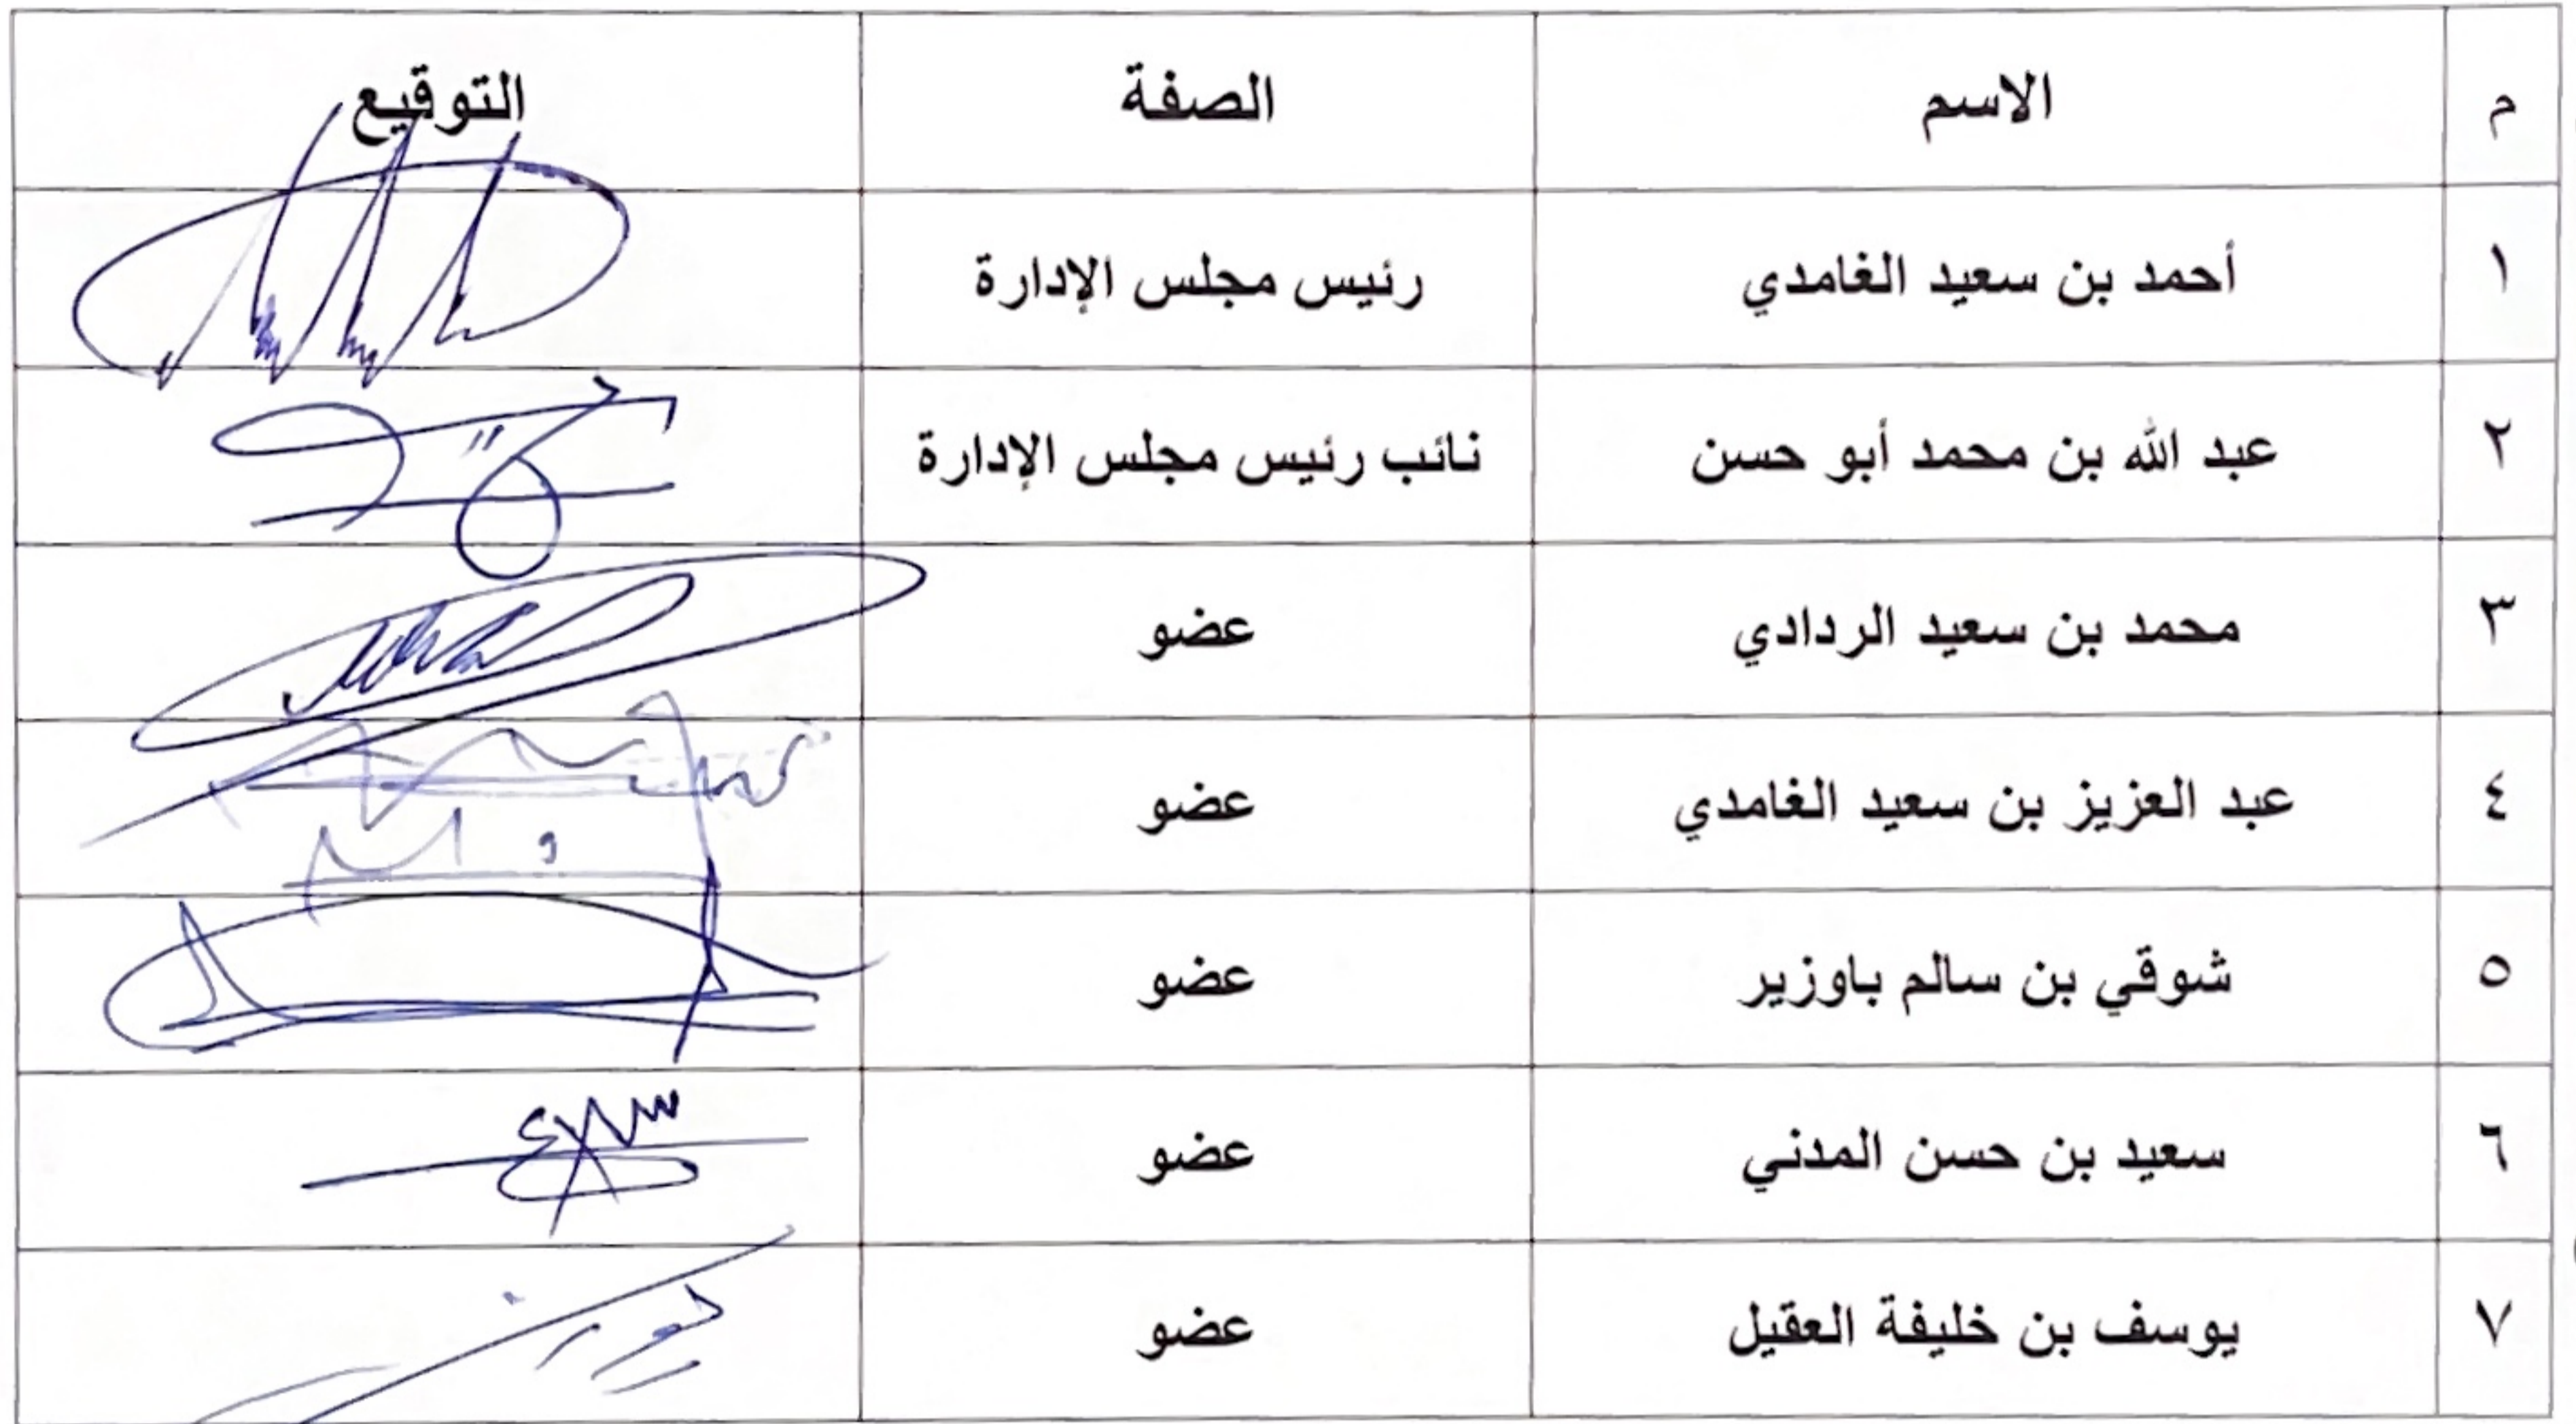 م الاسم الصفة التوقيع
١ أحمد بن سعيد الغامدي رئيس مجلس الإدارة
٢ عبد الله بن محمد أبو حسن نائب رئيس مجلس الإدارة
٣ محمد بن سعيد الردادي عضو
٤ عبد العزيز بن سعيد الغامدي عضو
٥ شوقي بن سالم باوزير عضو
٦ سعيد بن حسن المدني عضو
٧ يوسف بن خليفة العقيل عضو